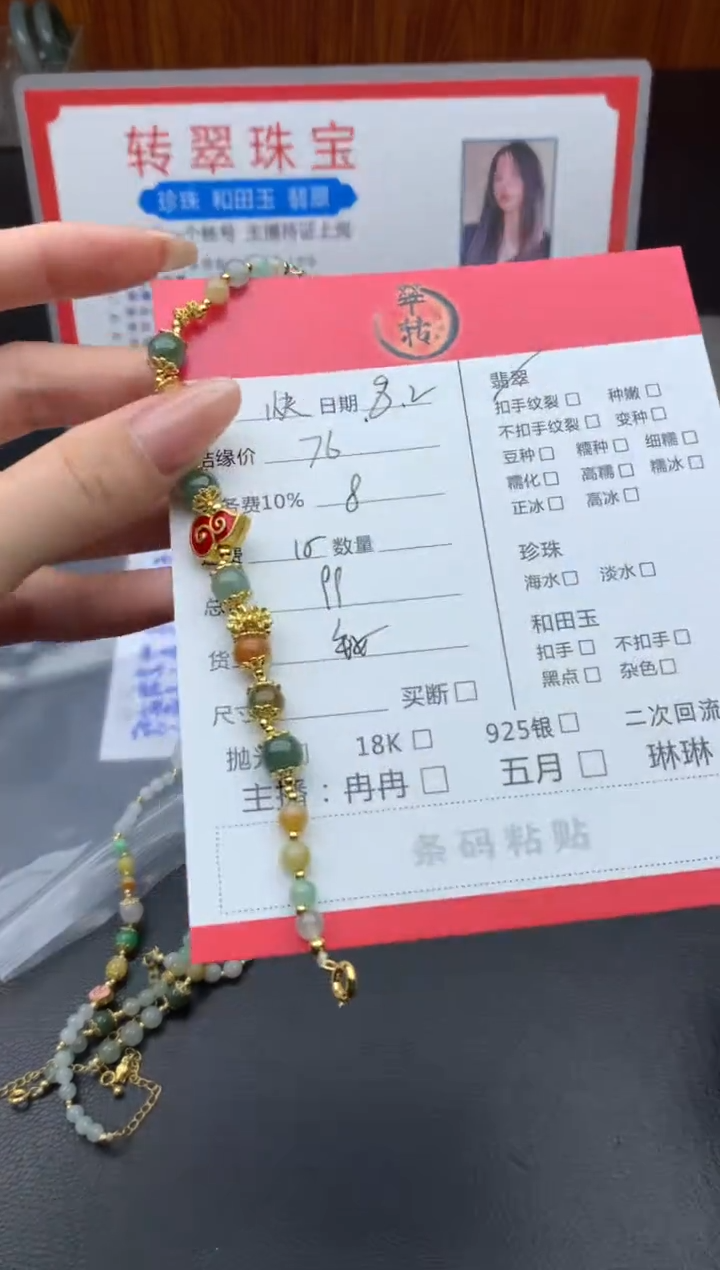 转翠珠宝
珍珠 和田玉 翡翠
翠
转
快 日期 8.2
结缘价 76
务费10% 8
费 15 数量
总 99
货
尺寸
买断□
抛光
18K □ 925银□ 二次回流
主播：冉冉 □ 五月 □ 琳琳
条码粘贴
翡翠
扣手纹裂□ 种嫩□
不扣手纹裂□ 变种□
豆种□ 糯种□ 细糯□
糯化□ 高糯□ 糯冰□
正冰□ 高冰□
珍珠
海水□ 淡水□
和田玉
扣手□ 不扣手□
黑点□ 杂色□